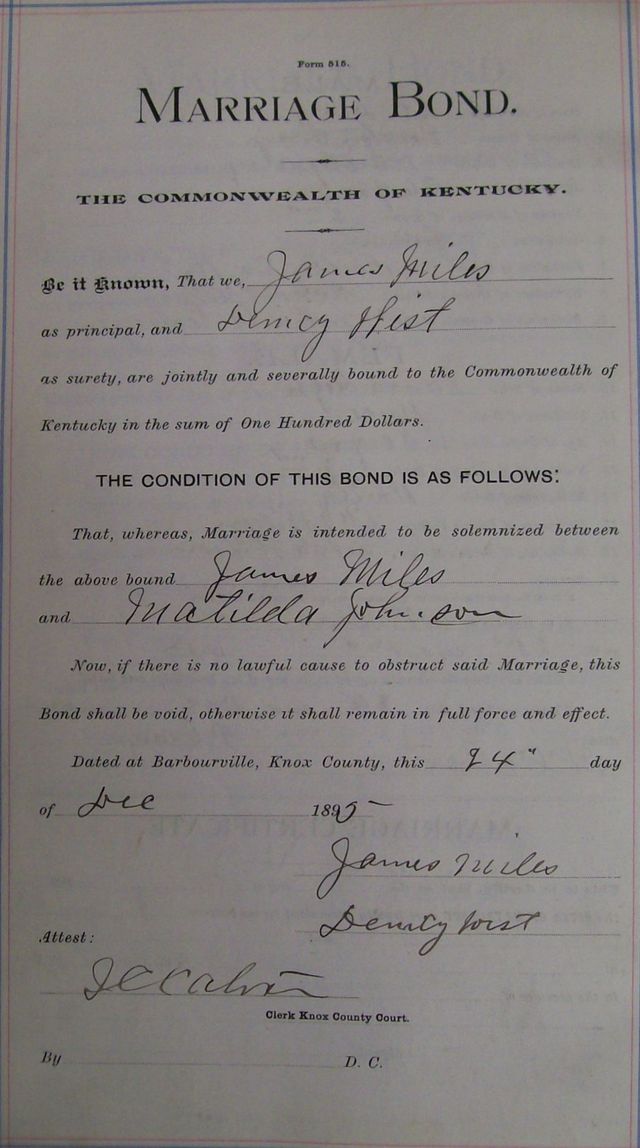 Form 515.
MARRIAGE BOND.
THE COMMONWEALTH OF KENTUCKY.
Be it Known, That we, James Miles
as principal, and
as surety, are jointly and severally bound to the Commonwealth of
Kentucky in the sum of One Hundred Dollars.
THE CONDITION OF THIS BOND IS AS FOLLOWS:
That, whereas, Marriage is intended to be solemnized between
the above bound James Miles
and Matilda Johnson
Now, if there is no lawful cause to obstruct said Marriage, this
Bond shall be void, otherwise it shall remain in full force and effect.
Dated at Barbourville, Knox County, this 24" day
of Dec 1895
James Miles
Attest:
Clerk Knox County Court.
By D. C.